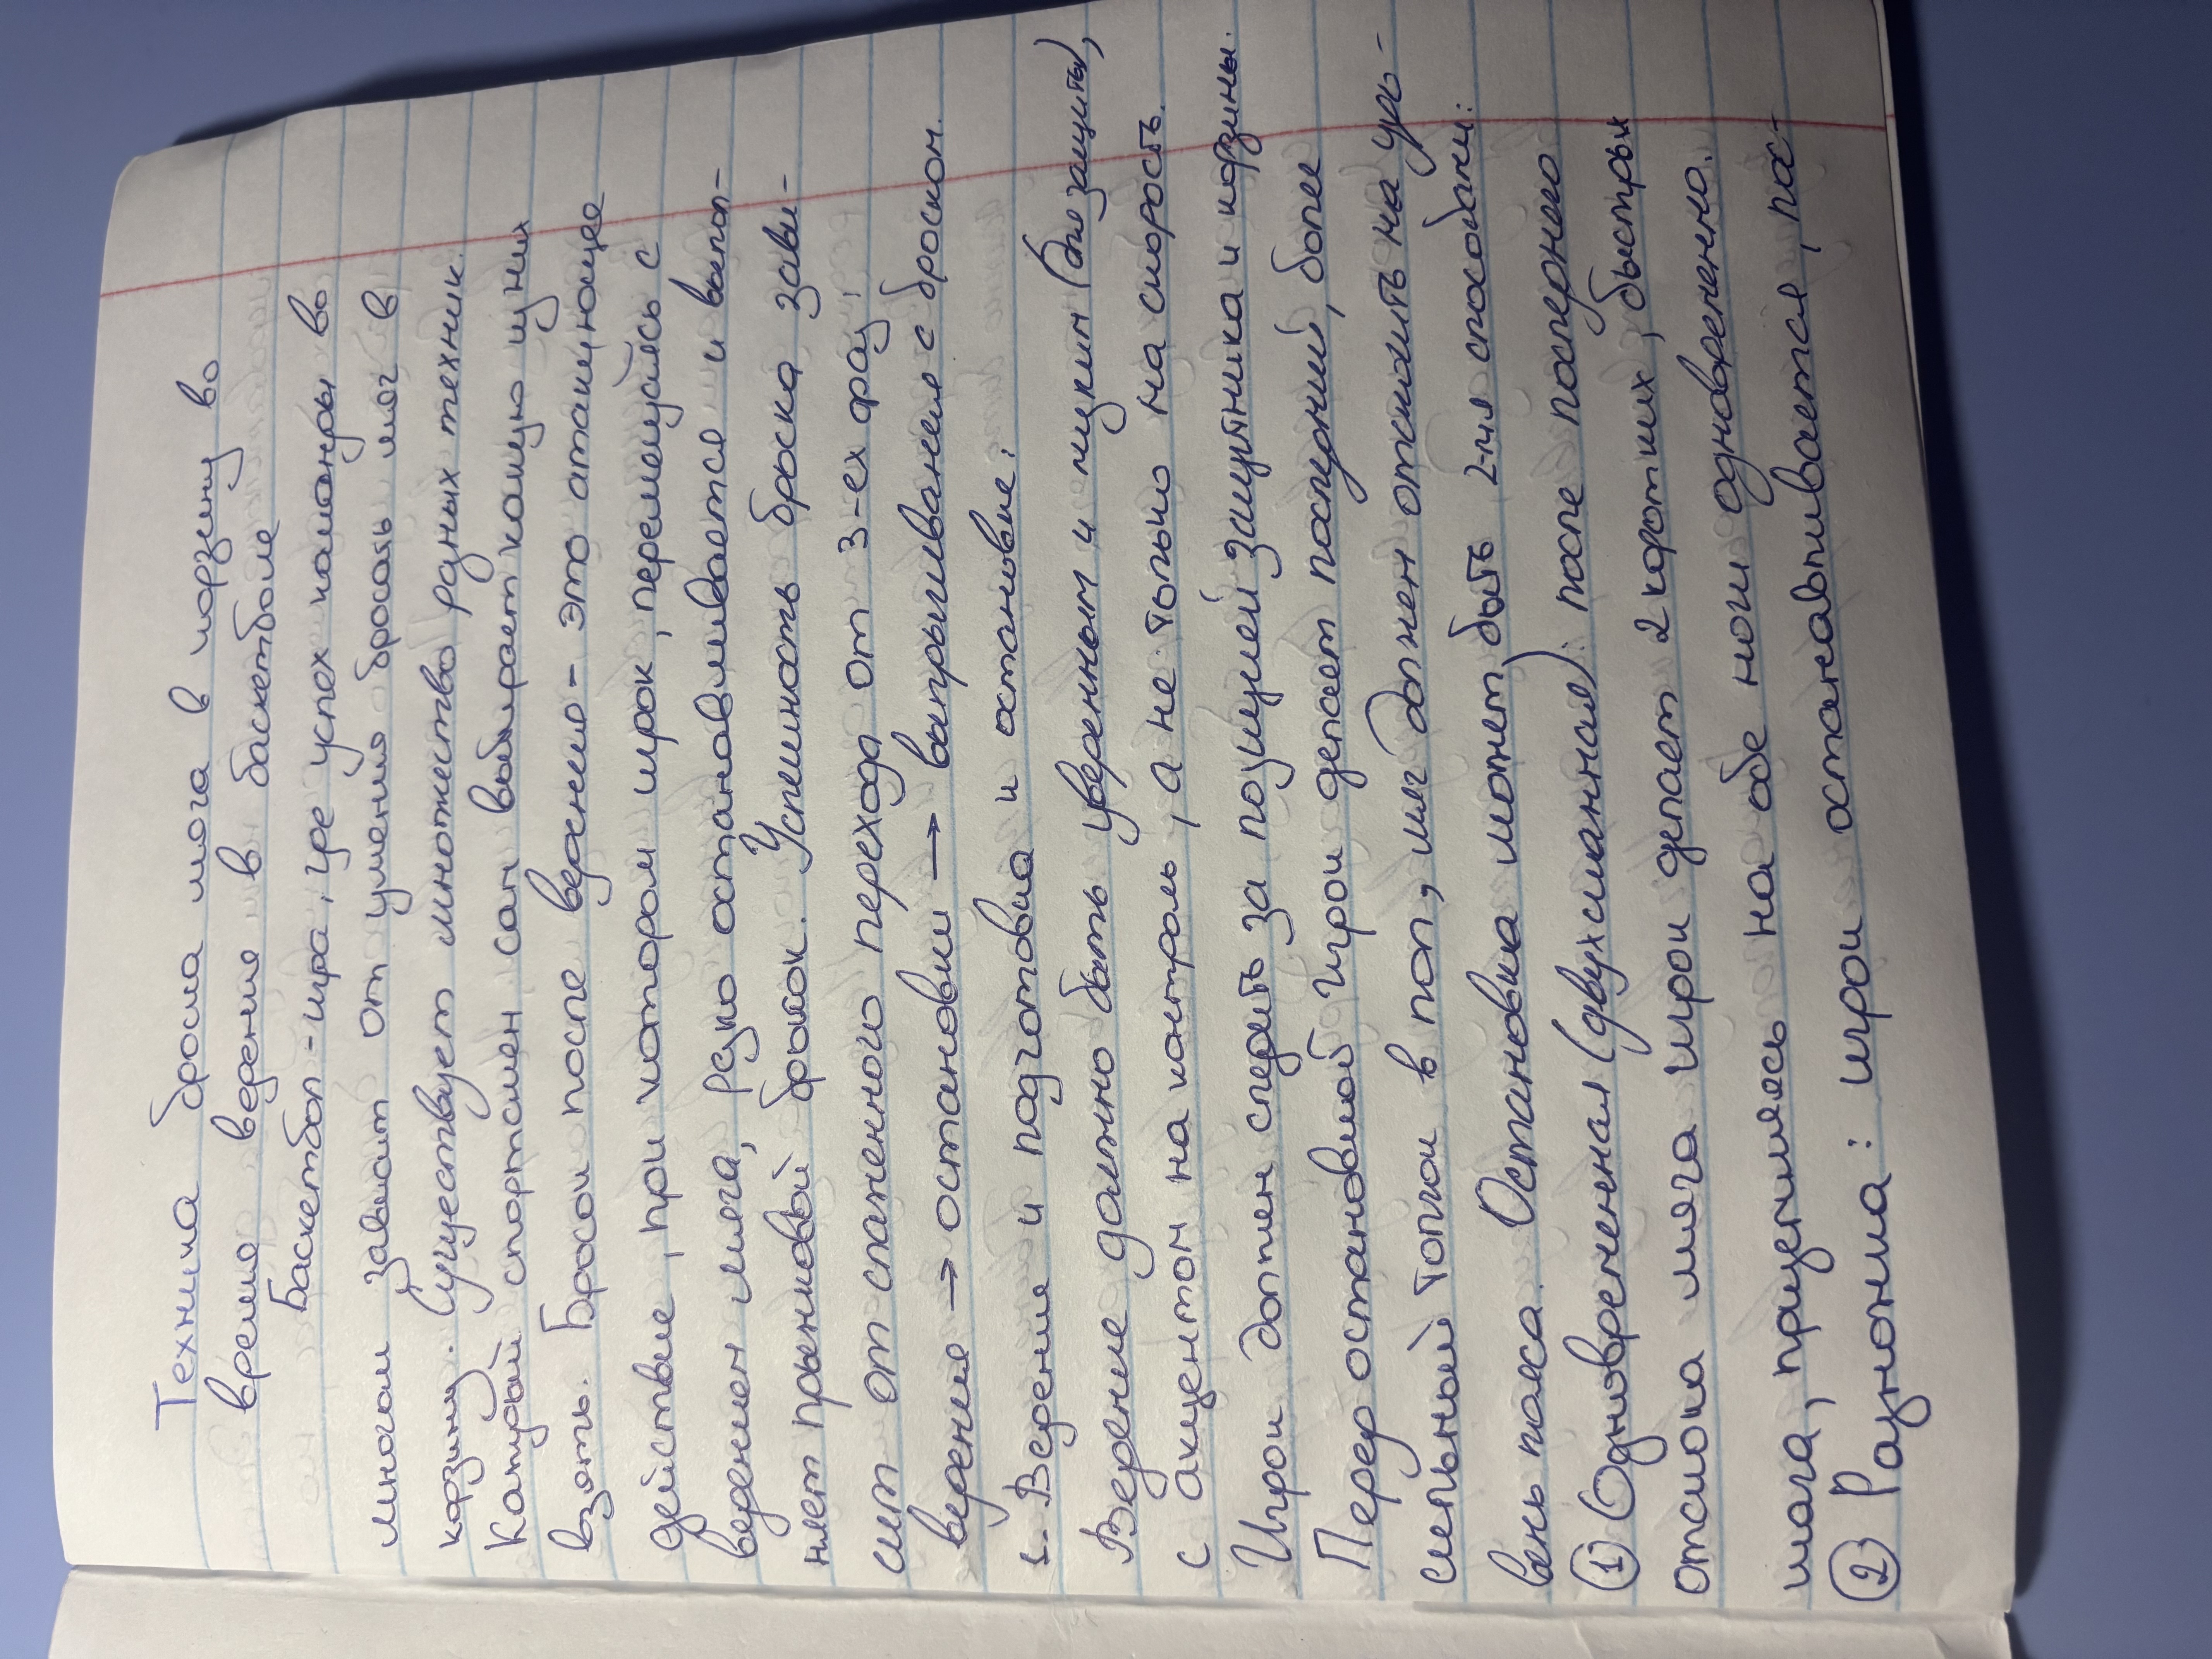 Техника броска мяча в корзину во
время ведения в баскетболе
Баскетбол - игра, где успех команды во
многом зависит от умения бросать мяч в
корзину. Существует множество разных техник.
Каторый спортсмен сам выбирает какую из них
взять. Бросок после ведения - это атакующее
действие, при котором игрок, перемещаясь с
ведением мяча, резко останавливается и выпол-
няет прыжковый бросок. Успешность броска зави-
сит от слаженного перехода от 3-ех фаз:
ведение → остановки → выпрыгивания с броском.
1. Ведение и подготовка к остановке.
Ведение должно быть уверенным и низким (вне защиты),
с акцентом на контроль, а не только на скорость.
Игрок должен следить за позицией защитника и корзины.
Перед остановкой игрок делает последний, более
сильный толчок в пол, мяч должен отскочить на уро-
вень пояса. Остановка может быть 2-мя способами:
① Одновременная (двухшажная): после последнего
отскока мяча игрок делает 2 коротких, быстрых
шага, приземляясь на обе ноги одновременно.
② Разножка: игрок останавливается, пос-